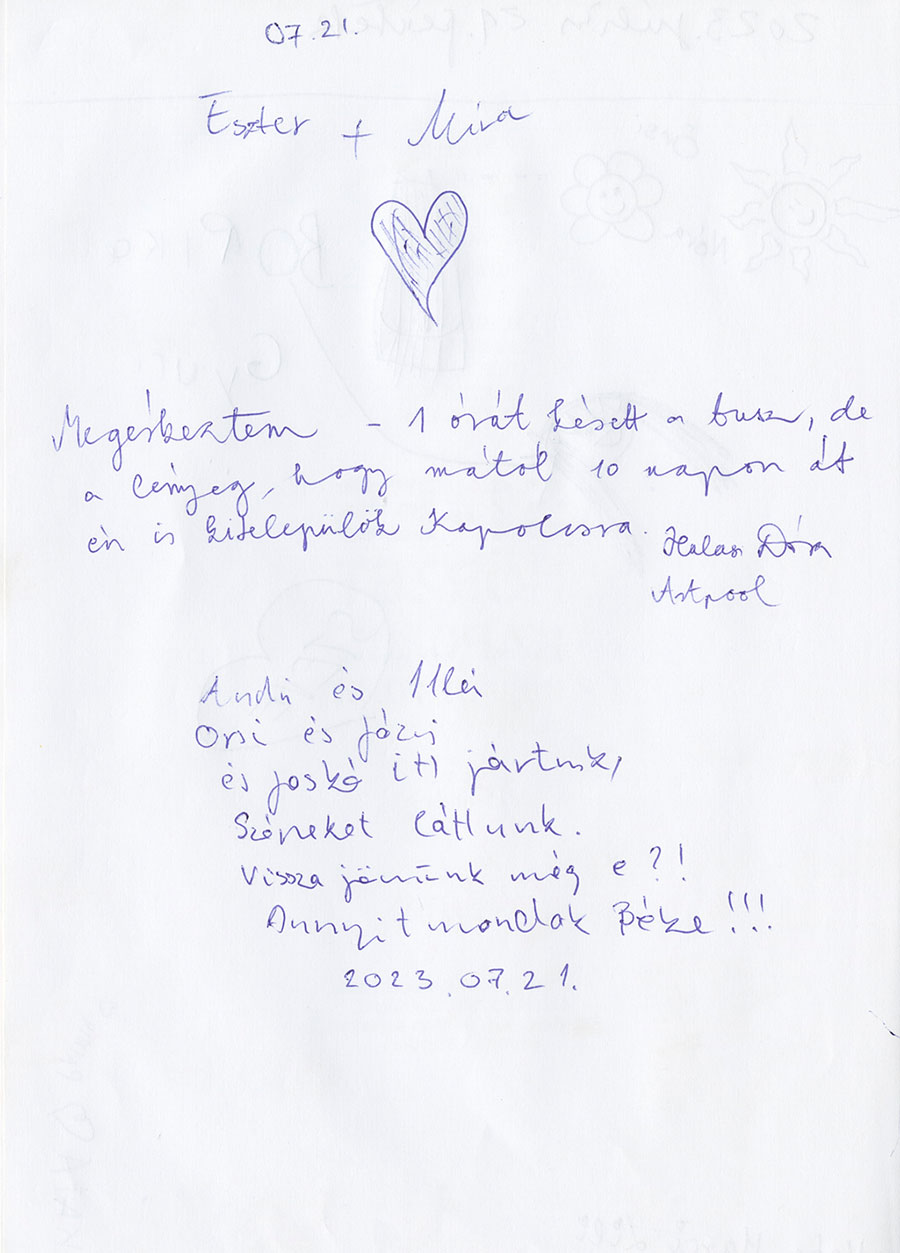 07.21.
Eszter + Mira
Megérkeztem – 1 órát késett a busz, de
a lényeg, hogy mától 10 napon át
én is kitelepülök Kapolcsra.
Halasi Dóra
Artpool
Andi és
Orsi és Józsi
és Joskó itt jártunk,
Szépeket láttunk.
Vissza jövünk még e?!
Annyit mondok Béke!!!
2023.07.21.